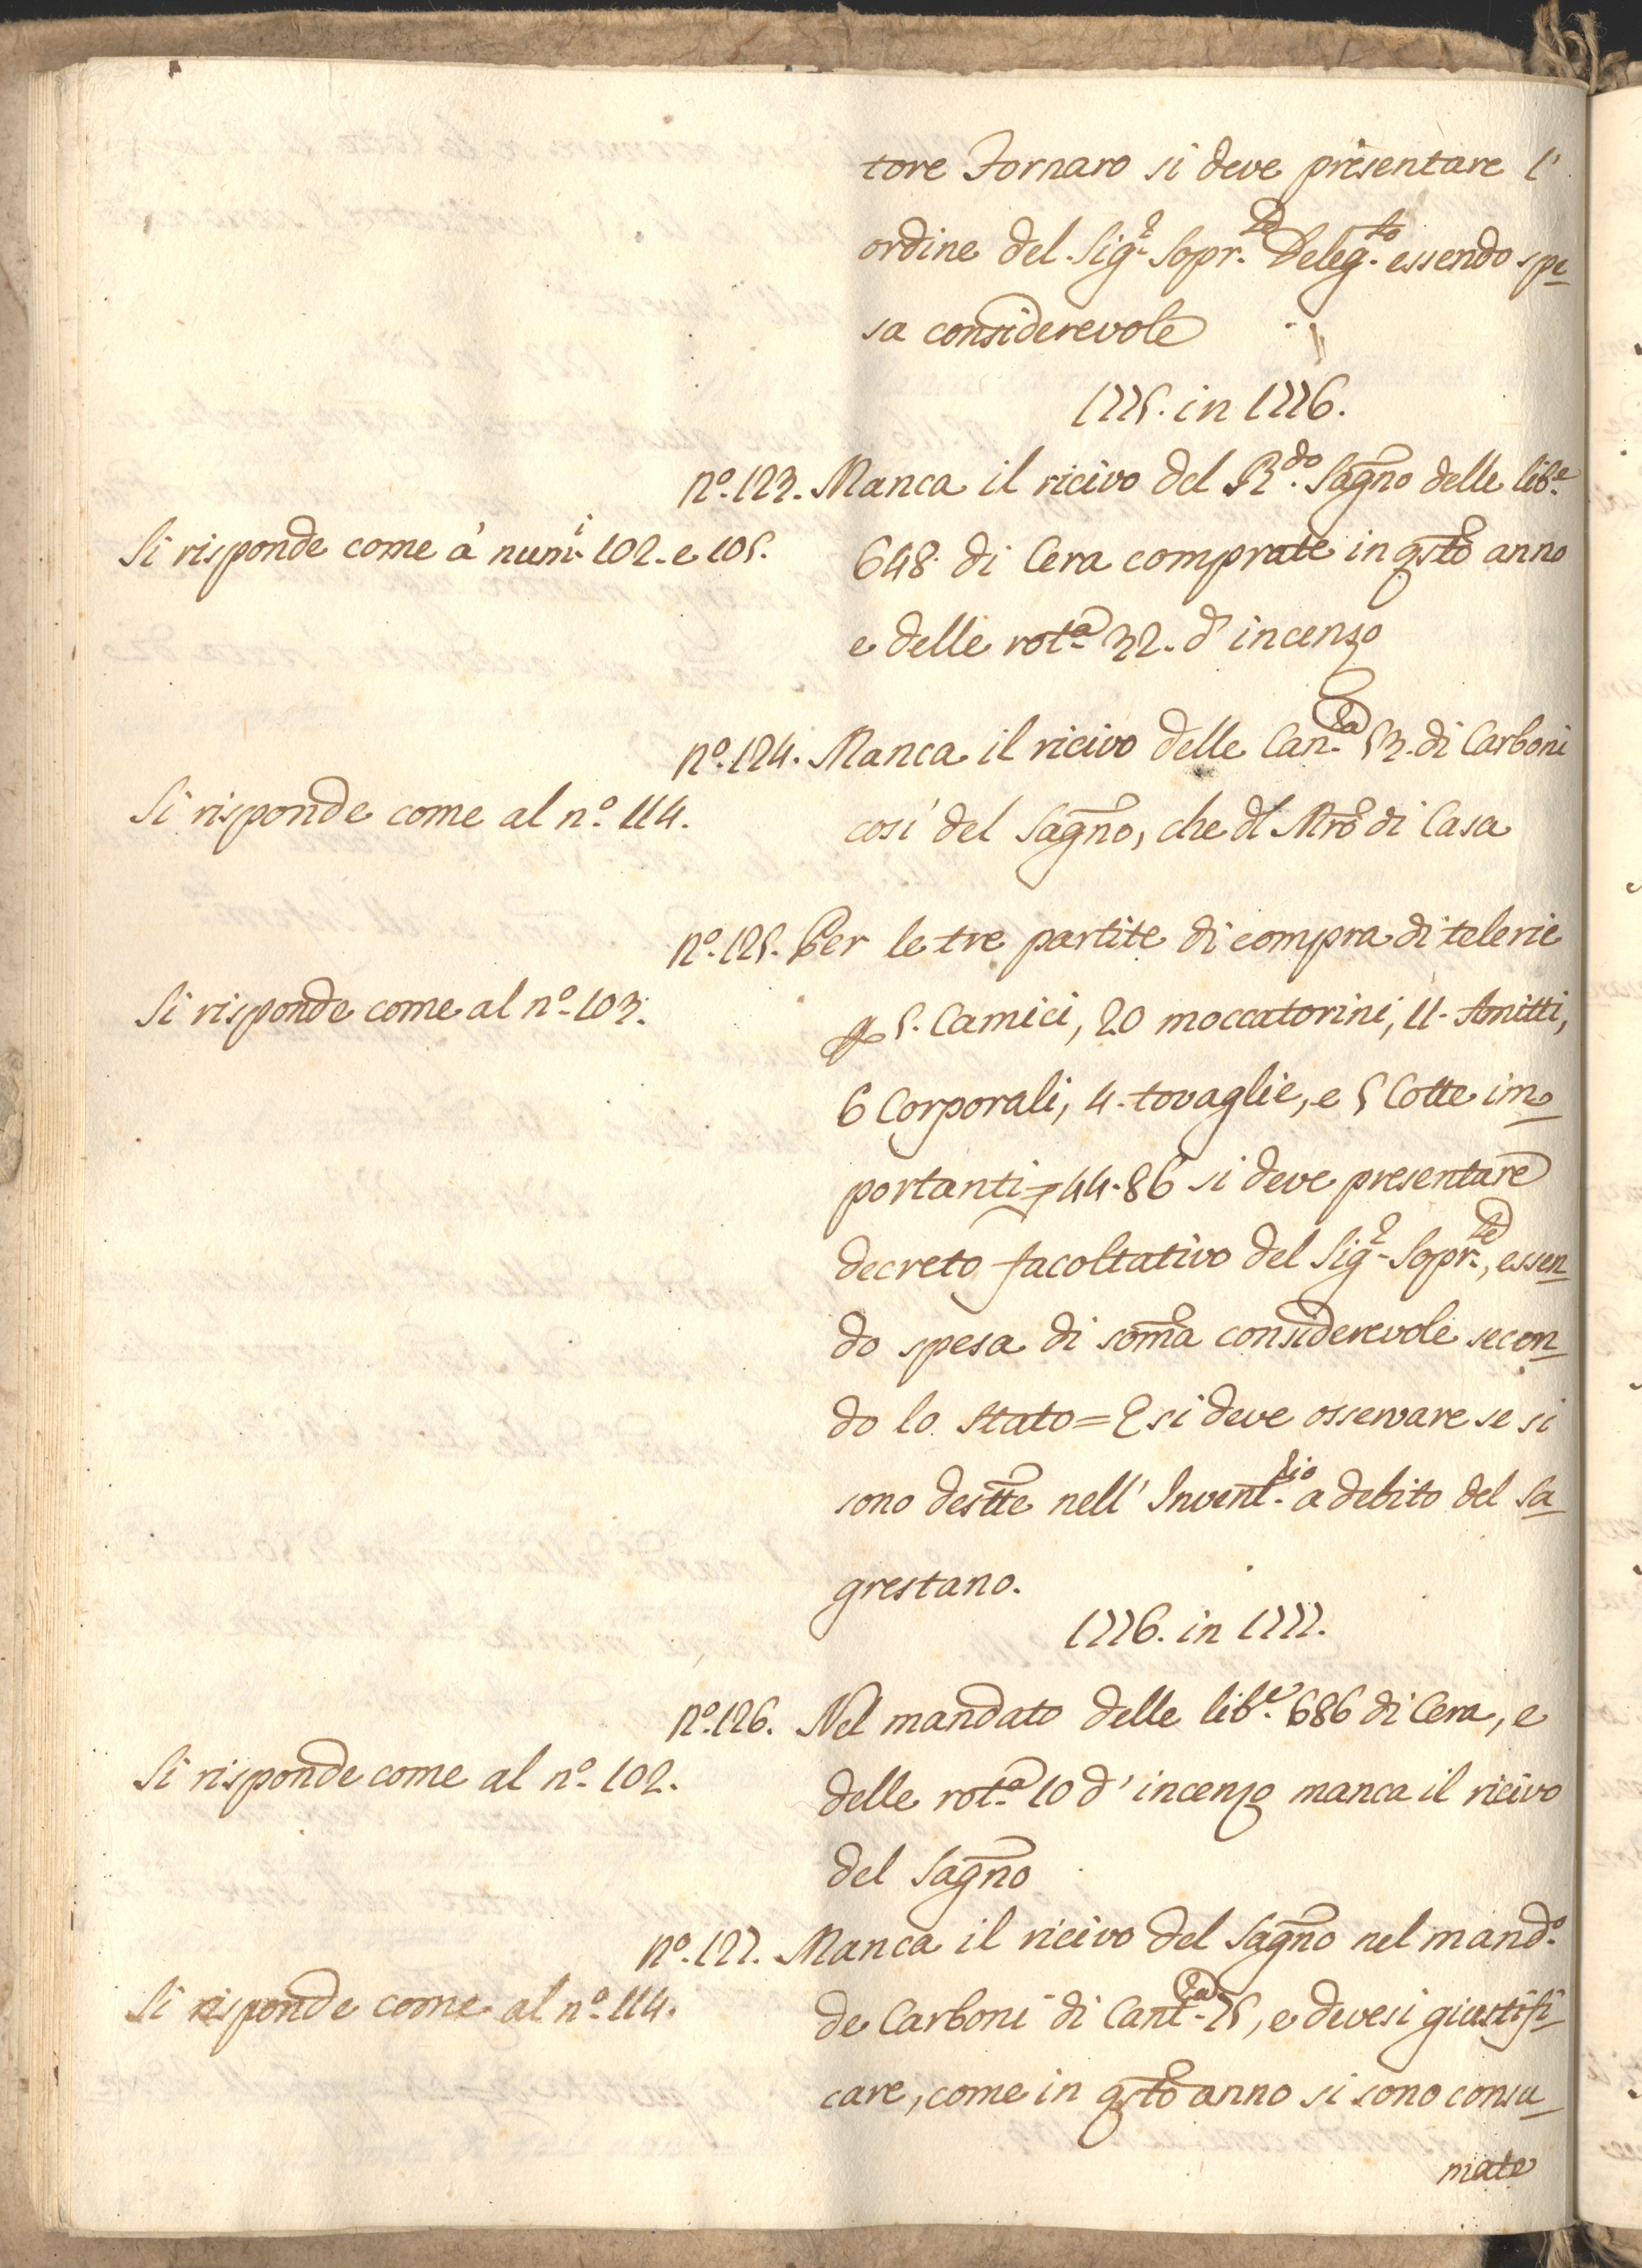 tore Fornaro si deve presentare l'
ordine del Sig.r Sopr.te Deleg.to essendo spe
sa considerevole
1775. in 1776.
n.º 123. Manca il ricivo del R.do Sagno delle lib.e
Si risponde come à num.i 102. e 105.
648. di Cera comprate in qsto anno
e delle rot.a 32. d'incenzo
n.º 124. Manca il ricivo delle Can.ta 53. di Carboni
Si risponde come al n.º 114.
così del Sagno, che dl Mro di Casa
n.º 125. Per le tre partite di compra di telerie
Si risponde come al n.º 103.
5. Camici, 20 moccatorini, 11. Amitti,
6 Corporali, 4. tovaglie, e 5 Cotte im
portanti 44.86 si deve presentare
decreto facoltativo del Sig.r Sopr.te, essen
do spesa di soma considerevole secon
do lo Stato = E si deve osservare se si
sono destte nell' Invent.rio a debito del Sa
grestano.
1776. in 1777.
n.º 126. Nel mandato delle lib.e 686 di Cera, e
Si risponde come al n.º 102.
delle rot.a 10 d'incenzo manca il ricivo
del Sagno
n.º 127. Manca il ricivo del Sagno nel mand.o
Si risponde come al n.º 114.
de Carboni di Cant.ra 75, e devesi giustifi
care, come in qsto anno si sono consu
mate